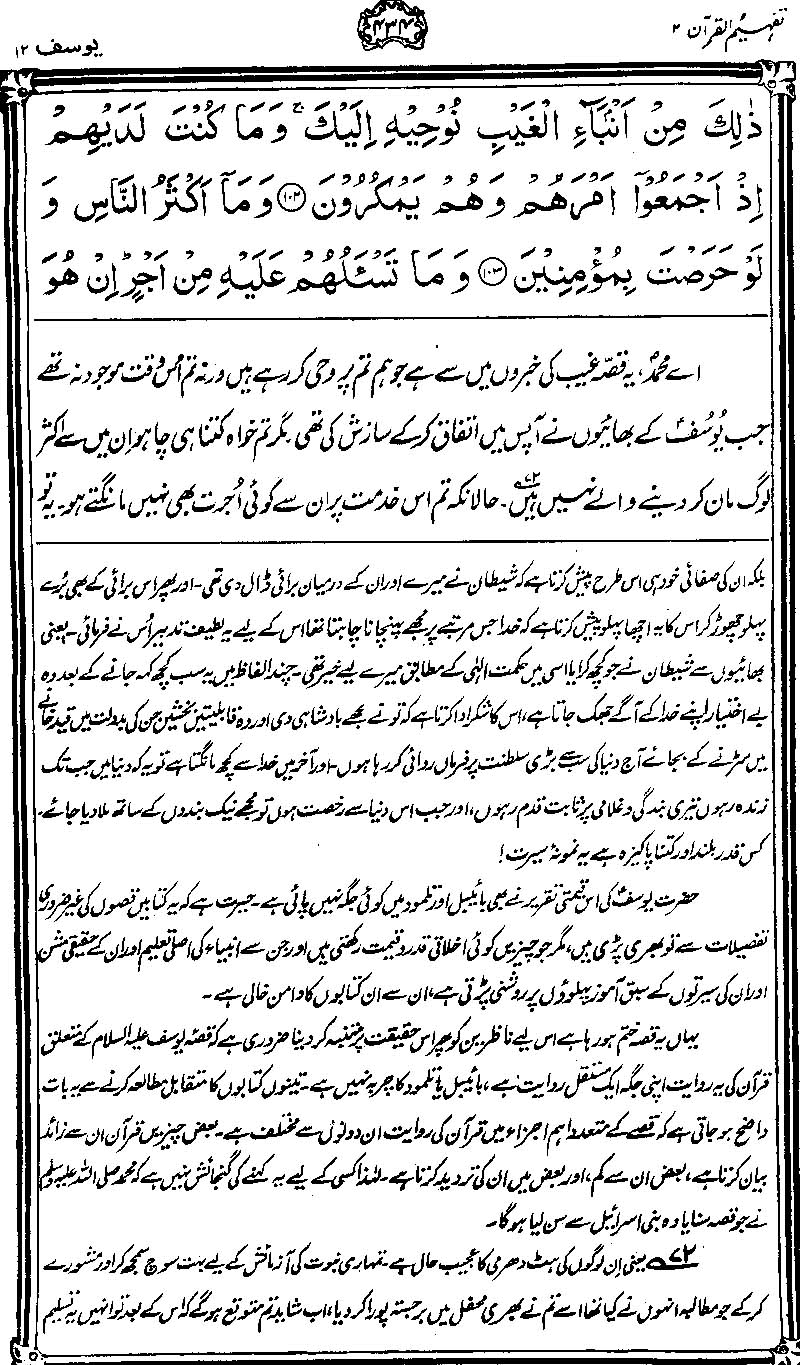 تفہیم القرآن ۲
۴۳۴
یوسف ۱۲
ذٰلِكَ مِنْ اَنْۢبَآءِ الْغَيْبِ نُوْحِيْهِ اِلَيْكَ ۚ وَمَا كُنْتَ لَدَيْهِمْ
اِذْ اَجْمَعُوْۤا اَمْرَهُمْ وَهُمْ يَمْكُرُوْنَ ﴿۱۰۲﴾ وَمَاۤ اَكْثَرُ النَّاسِ وَ
لَوْ حَرَصْتَ بِمُؤْمِنِيْنَ ﴿۱۰۳﴾ وَمَا تَسْـَٔلُهُمْ عَلَيْهِ مِنْ اَجْرٍ اِنْ هُوَ
اے محمدؐ، یہ قصّہ غیب کی خبروں میں سے ہے جو ہم تم پر وحی کر رہے ہیں ورنہ تم اُس وقت موجود نہ تھے
جب یُوسُفؑ کے بھائیوں نے آپس میں اتفاق کر کے سازش کی تھی۔ مگر تم خواہ کتنا ہی چاہو ان میں سے اکثر
لوگ مان کر دینے والے نہیں ہیں۷۲۔ حالانکہ تم اس خدمت پر ان سے کوئی اُجرت بھی نہیں مانگتے ہو۔ یہ تو
بلکہ ان کی صفائی خود ہی اس طرح پیش کرتا ہے کہ شیطان نے میرے اور ان کے درمیان برائی ڈال دی تھی۔ اور پھر اس برائی کے بھی بُرے
پہلو چھوڑ کر اس کا یہ اچھا پہلو پیش کرتا ہے کہ خدا جس مرتبے پر مجھے پہنچانا چاہتا تھا اس کے لیے یہ لطیف تدبیر اُس نے فرمائی۔ یعنی
بھائیوں سے شیطان نے جو کچھ کرایا اسی میں حکمت الٰہی کے مطابق میرے لیے خیر تھی۔ چند الفاظ میں یہ سب کچھ کہہ جانے کے بعد وہ
بے اختیار اپنے خدا کے آگے جھک جاتا ہے، اس کا شکر ادا کرتا ہے کہ تو نے مجھے بادشاہی دی اور وہ قابلیتیں بخشیں جن کی بدولت میں قید خانے
میں سڑنے کے بجائے آج دنیا کی سب سے بڑی سلطنت پر فرماں روائی کر رہا ہوں۔ اور آخر میں خدا سے کچھ مانگتا ہے تو یہ کہ دنیا میں جب تک
زندہ رہوں تیری بندگی و غلامی پر ثابت قدم رہوں، اور جب اس دنیا سے رخصت ہوں تو مجھے نیک بندوں کے ساتھ ملا دیا جائے۔
کس قدر بلند اور کتنا پاکیزہ ہے یہ نمونۂ سیرت!
حضرت یوسفؑ کی اس قیمتی تقریر نے بھی بائیبل اور تلمود میں کوئی جگہ نہیں پائی ہے۔ حیرت ہے کہ یہ کتابیں قصوں کی غیر ضروری
تفصیلات سے تو بھری پڑی ہیں، مگر جو چیزیں کوئی اخلاقی قدر و قیمت رکھتی ہیں اور جن سے انبیاء کی اصلی تعلیم اور ان کے حقیقی مشن
اور ان کی سیرتوں کے سبق آموز پہلوؤں پر روشنی پڑتی ہے، ان سے ان کتابوں کا دامن خالی ہے۔
یہاں یہ قصہ ختم ہو رہا ہے اس لیے ناظرین کو پھر اس حقیقت پر متنبہ کر دینا ضروری ہے کہ قصۂ یوسف علیہ السلام کے متعلق
قرآن کی یہ روایت اپنی جگہ ایک مستقل روایت ہے، بائیبل یا تلمود کا چربہ نہیں ہے۔ تینوں کتابوں کا متقابل مطالعہ کرنے سے یہ بات
واضح ہو جاتی ہے کہ قصے کے متعدد اہم اجزاء میں قرآن کی روایت ان دونوں سے مختلف ہے۔ بعض چیزیں قرآن ان سے زائد
بیان کرتا ہے، بعض ان سے کم، اور بعض میں ان کی تردید کرتا ہے۔ لہٰذا کسی کے لیے یہ کہنے کی گنجائش نہیں ہے کہ محمد صلی اللہ علیہ وسلم
نے جو قصہ سنایا وہ بنی اسرائیل سے سن لیا ہوگا۔
۷۲ یعنی اِن لوگوں کی ہٹ دھرمی کا عجیب حال ہے۔ تمہاری نبوت کی آزمائش کے لیے بہت سوچ سمجھ کر اور مشورے
کر کے جو مطالبہ انہوں نے کیا تھا اسے تم نے بھری محفل میں برجستہ پورا کر دیا، اب شاید تم متوقع ہو گے کہ اس کے بعد تو انہیں یہ تسلیم